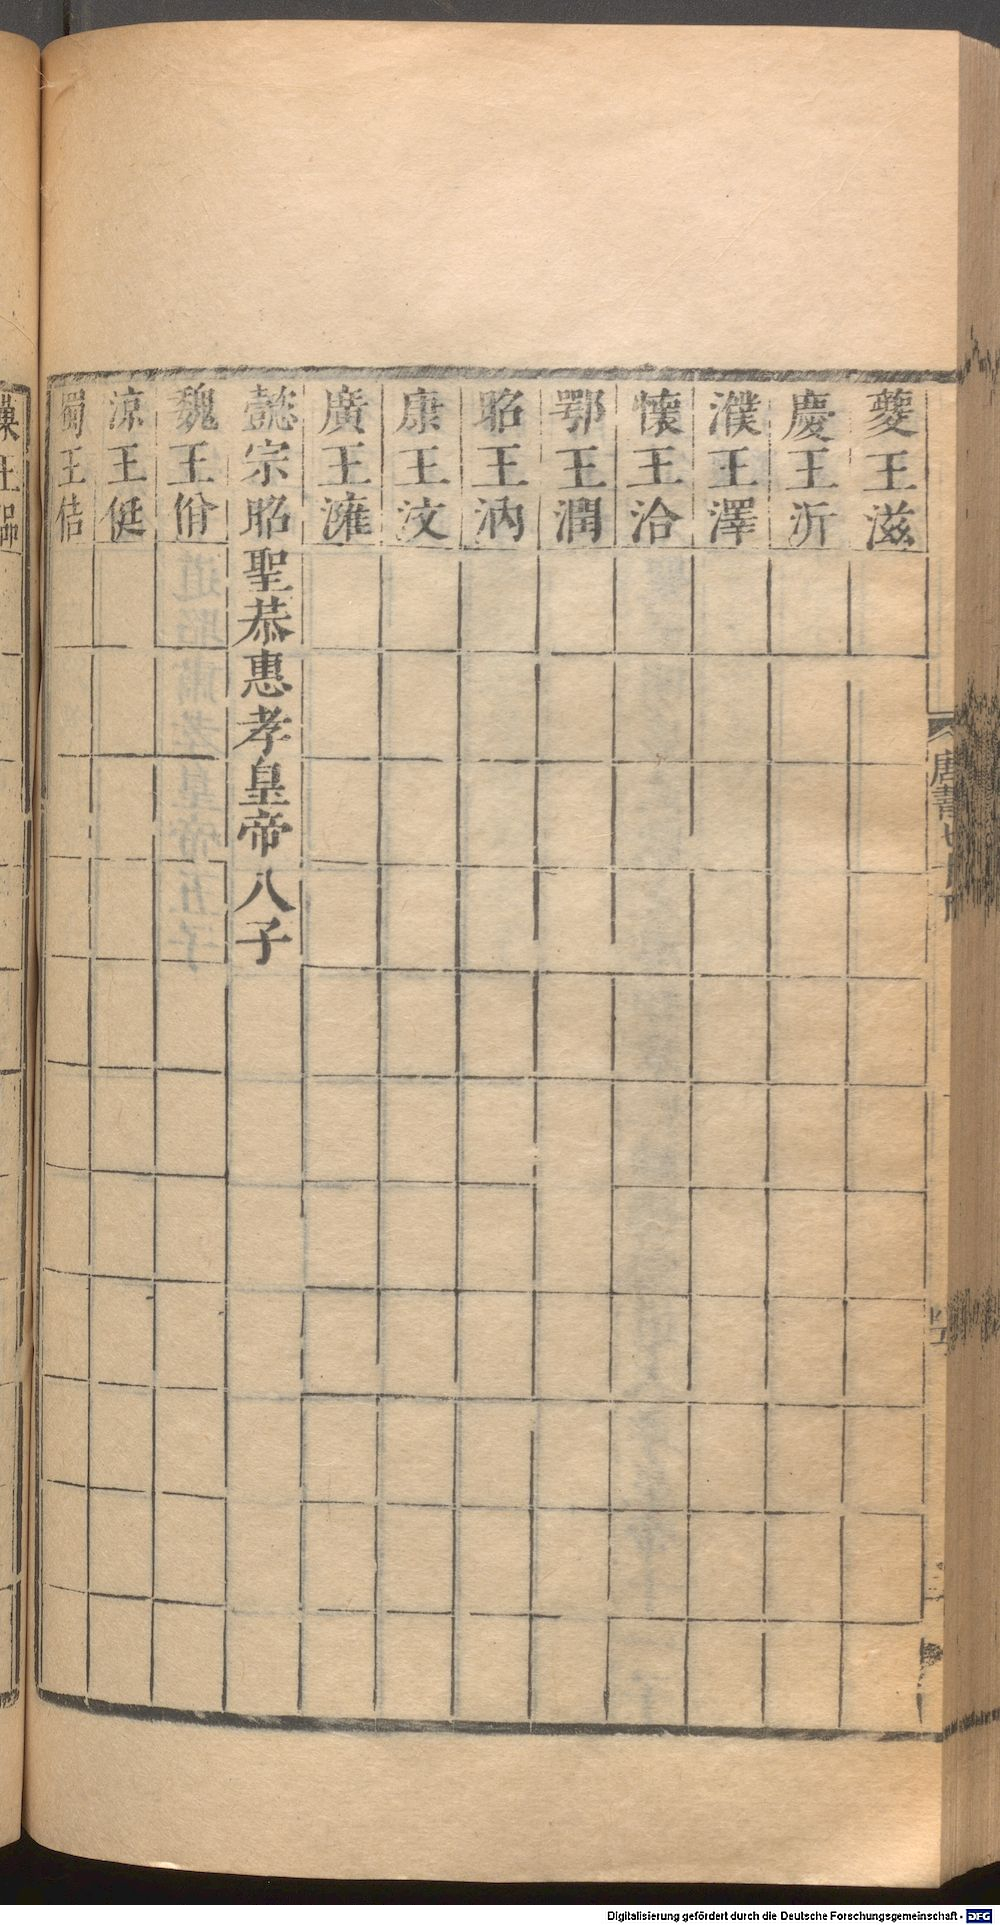 夔王滋
慶王沂
濮王澤
懷王洽
鄂王潤
昭王汭
康王汶
廣王澭
懿宗昭聖恭惠孝皇帝八子
魏王佾
涼王侹
蜀王佶
唐書七
Digitalisierung gefördert durch die Deutsche Forschungsgemeinschaft - DFG